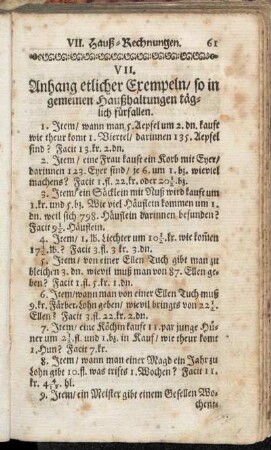 VII. Hauß-Rechnungen. 61
VII.
Anhang etlicher Exempeln/ so in
gemeinen Haußhaltungen täg-
lich fürfallen.
1. Item/ wann man 5. Aepfel um 2. dn. kauft
wie theur komt 1. Viertel/ darinnen 135. Aepfel
sind? Facit 13. kr. 2. dn.
2. Item/ eine Frau kauft ein Korb mit Eyer/
darinnen 123. Eyer sind/ je 6. um 1. bz. wieviel
machens? Facit 1. fl. 22. kr. oder 20½. bz.
3. Item/ ein Säcklein mit Nuß wird kaufft um
1. kr. und 5. bz. Wie viel Häuflein kommen um 1.
dn. weil sich 798. Häuflein darinnen befunden?
Facit 9½. Häuflein.
4. Item/ 1. ℔. Liechter um 10½. kr. wie kom̃en
17½. ℔? Facit 3. fl. 3. kr. 3. dn.
5. Item/ von einer Ellen Tuch gibt man zu
bleichen 3. dn. wievil muß man von 87. Ellen ge-
ben? Facit 1. fl. 5. kr. 1. dn.
6. Item/ wann man von einer Ellen Tuch muß
9. kr. Färber-Lohn geben/ wievil bringts von 22½.
Ellen? Facit 3. fl. 22. kr. 2. dn.
7. Item/ eine Köchin kauft 11. par junge Hü-
ner um 2½. fl. und 1. bz. in Kauf/ wie theur komt
1. Hun? Facit 7. kr.
8. Item/ wann man einer Magd ein Jahr zu
Lohn gibt 10. fl. was trifts 1. Wochen? Facit 11.
kr. hl.
9. Item/ ein Meister gibt einem Gesellen Wo-
chent-